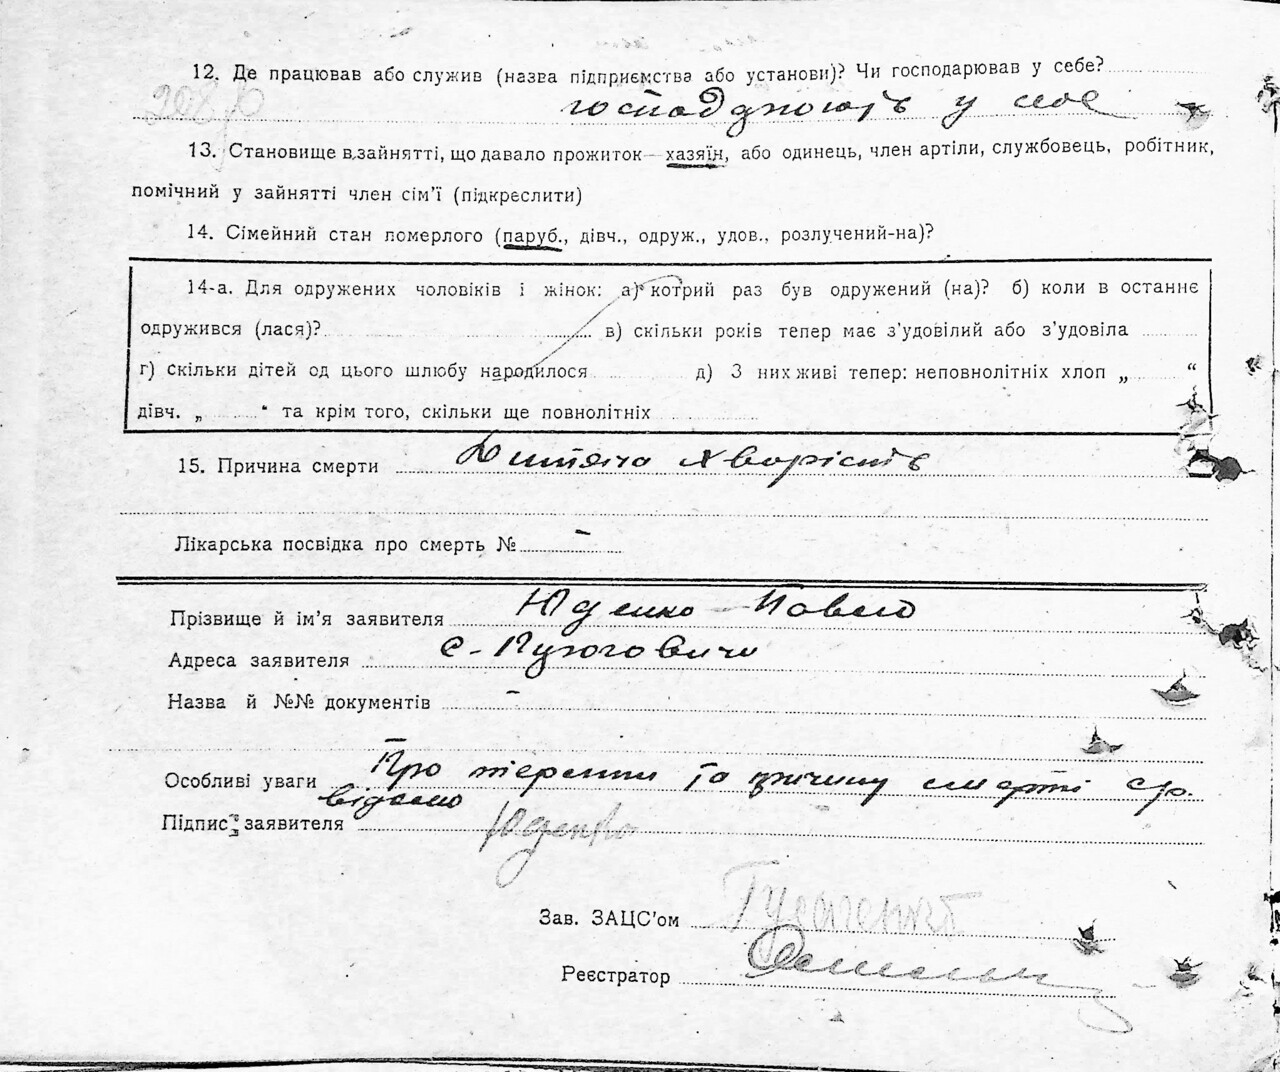 12. Де працював або служив (назва підприємства або установи)? Чи господарював у себе?
у себе
13. Становище в зайнятті, що давало прожиток—хазяїн, або одинець, член артіли, службовець, робітник,
помічний у зайнятті член сім'ї (підкреслити)
14. Сімейний стан померлого (паруб., дівч., одруж., удов., розлучений-на)?
14-а. Для одружених чоловіків і жінок: а) котрий раз був одружений (на)? б) коли в останнє
одружився (лася)? в) скільки років тепер має з'удовілий або з'удовіла
г) скільки дітей од цього шлюбу народилося д) З них живі тепер: неповнолітніх хлоп „ “
дівч. „ “ та крім того, скільки ще повнолітніх
15. Причина смерти Дитяча хворість
Лікарська посвідка про смерть № -
Прізвище й ім'я заявителя Юденко Павло
Адреса заявителя с.
Назва й №№ документів -
Особливі уваги Про та причину смерті
відомо
Підпис заявителя Юденко
Зав. ЗАЦС'ом
Реєстратор